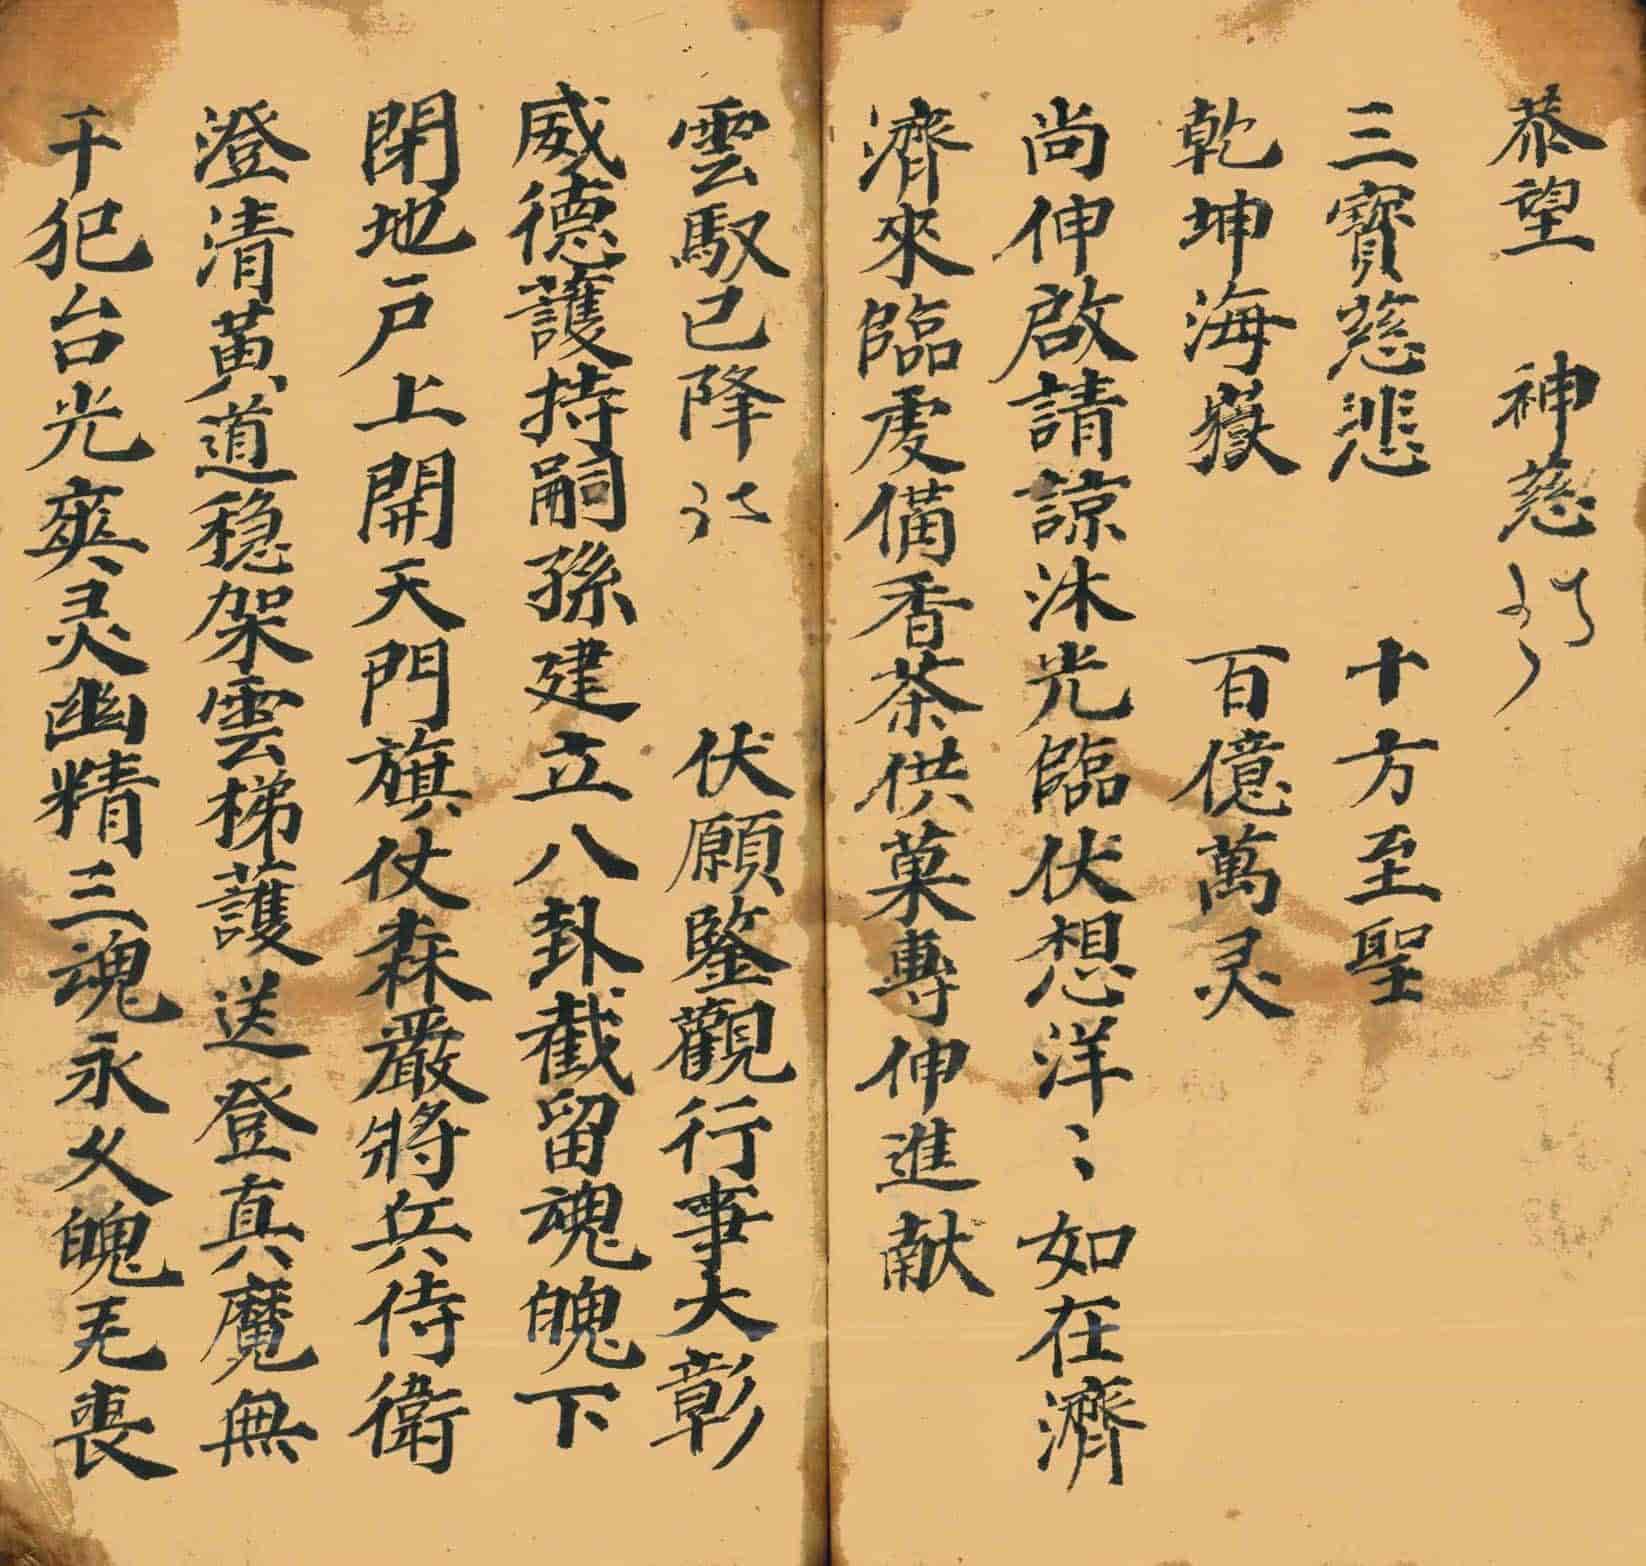 恭望　神慈
三寳慈悲　十方至聖
乾坤海嶽　百億萬灵
尚伸啟請諒沐光臨伏想洋〻如在濟
濟來臨虔備香茶供菓專伸進献
雲馭已降　伏願鑒觀行事大彰
威德護持嗣孫建立八卦截留魂魄下
閉地户上開天門旗仗森嚴將兵侍衛
澄清黃道穏架雲梯護送登真魔無
干犯台光爽灵幽精三魂永久魄无喪